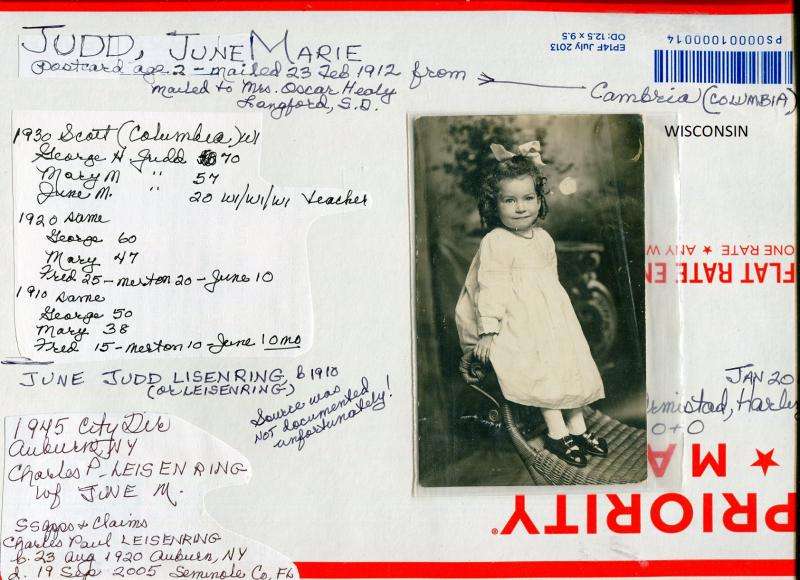 JUDD, JUNE MARIE
Postcard age 2 - mailed 23 Feb 1912 from
mailed to Mrs. Oscar Healy
Langford, S.D.
Cambria (COLUMBIA)
WISCONSIN
EP14F July 2013
OD: 12.5 x 9.5
PS00001000014
1930 Scott (Columbia) WI
George H Judd 70
Mary M " 57
June M. " 20 WI/WI/WI teacher
1920 same
George 60
Mary 47
Fred 25 - Merton 20 - June 10
1910 same
George 50
Mary 38
Fred 15 - Merton 10 - June 10 mo
JUNE JUDD LISENRING b 1910
(or LEISENRING)
Source was
NOT documented
unfortunately!
1945 City Dir
Auburn, NY
Charles P - LEISENRING
wf JUNE M.
SS apps & Claims
Charles Paul LEISENRING
b. 23 Aug 1920 Auburn, NY
d. 19 Sep 2005 Seminole Co, FL
ONE RATE ★ ANY W
FLAT RATE EN
JAN 20
rmistad, Harle
0 + 0
★ MA
PRIORITY®